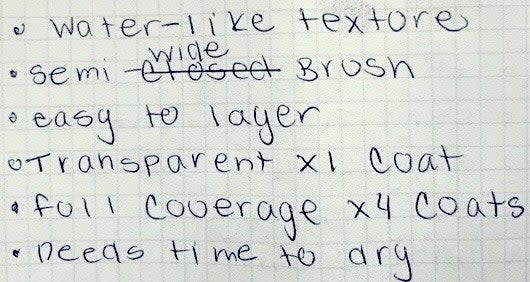 • water-like texture
• semi ~~closed~~ wide Brush
• easy to layer
• Transparent x1 coat
• full coverage x4 coats
• needs time to dry